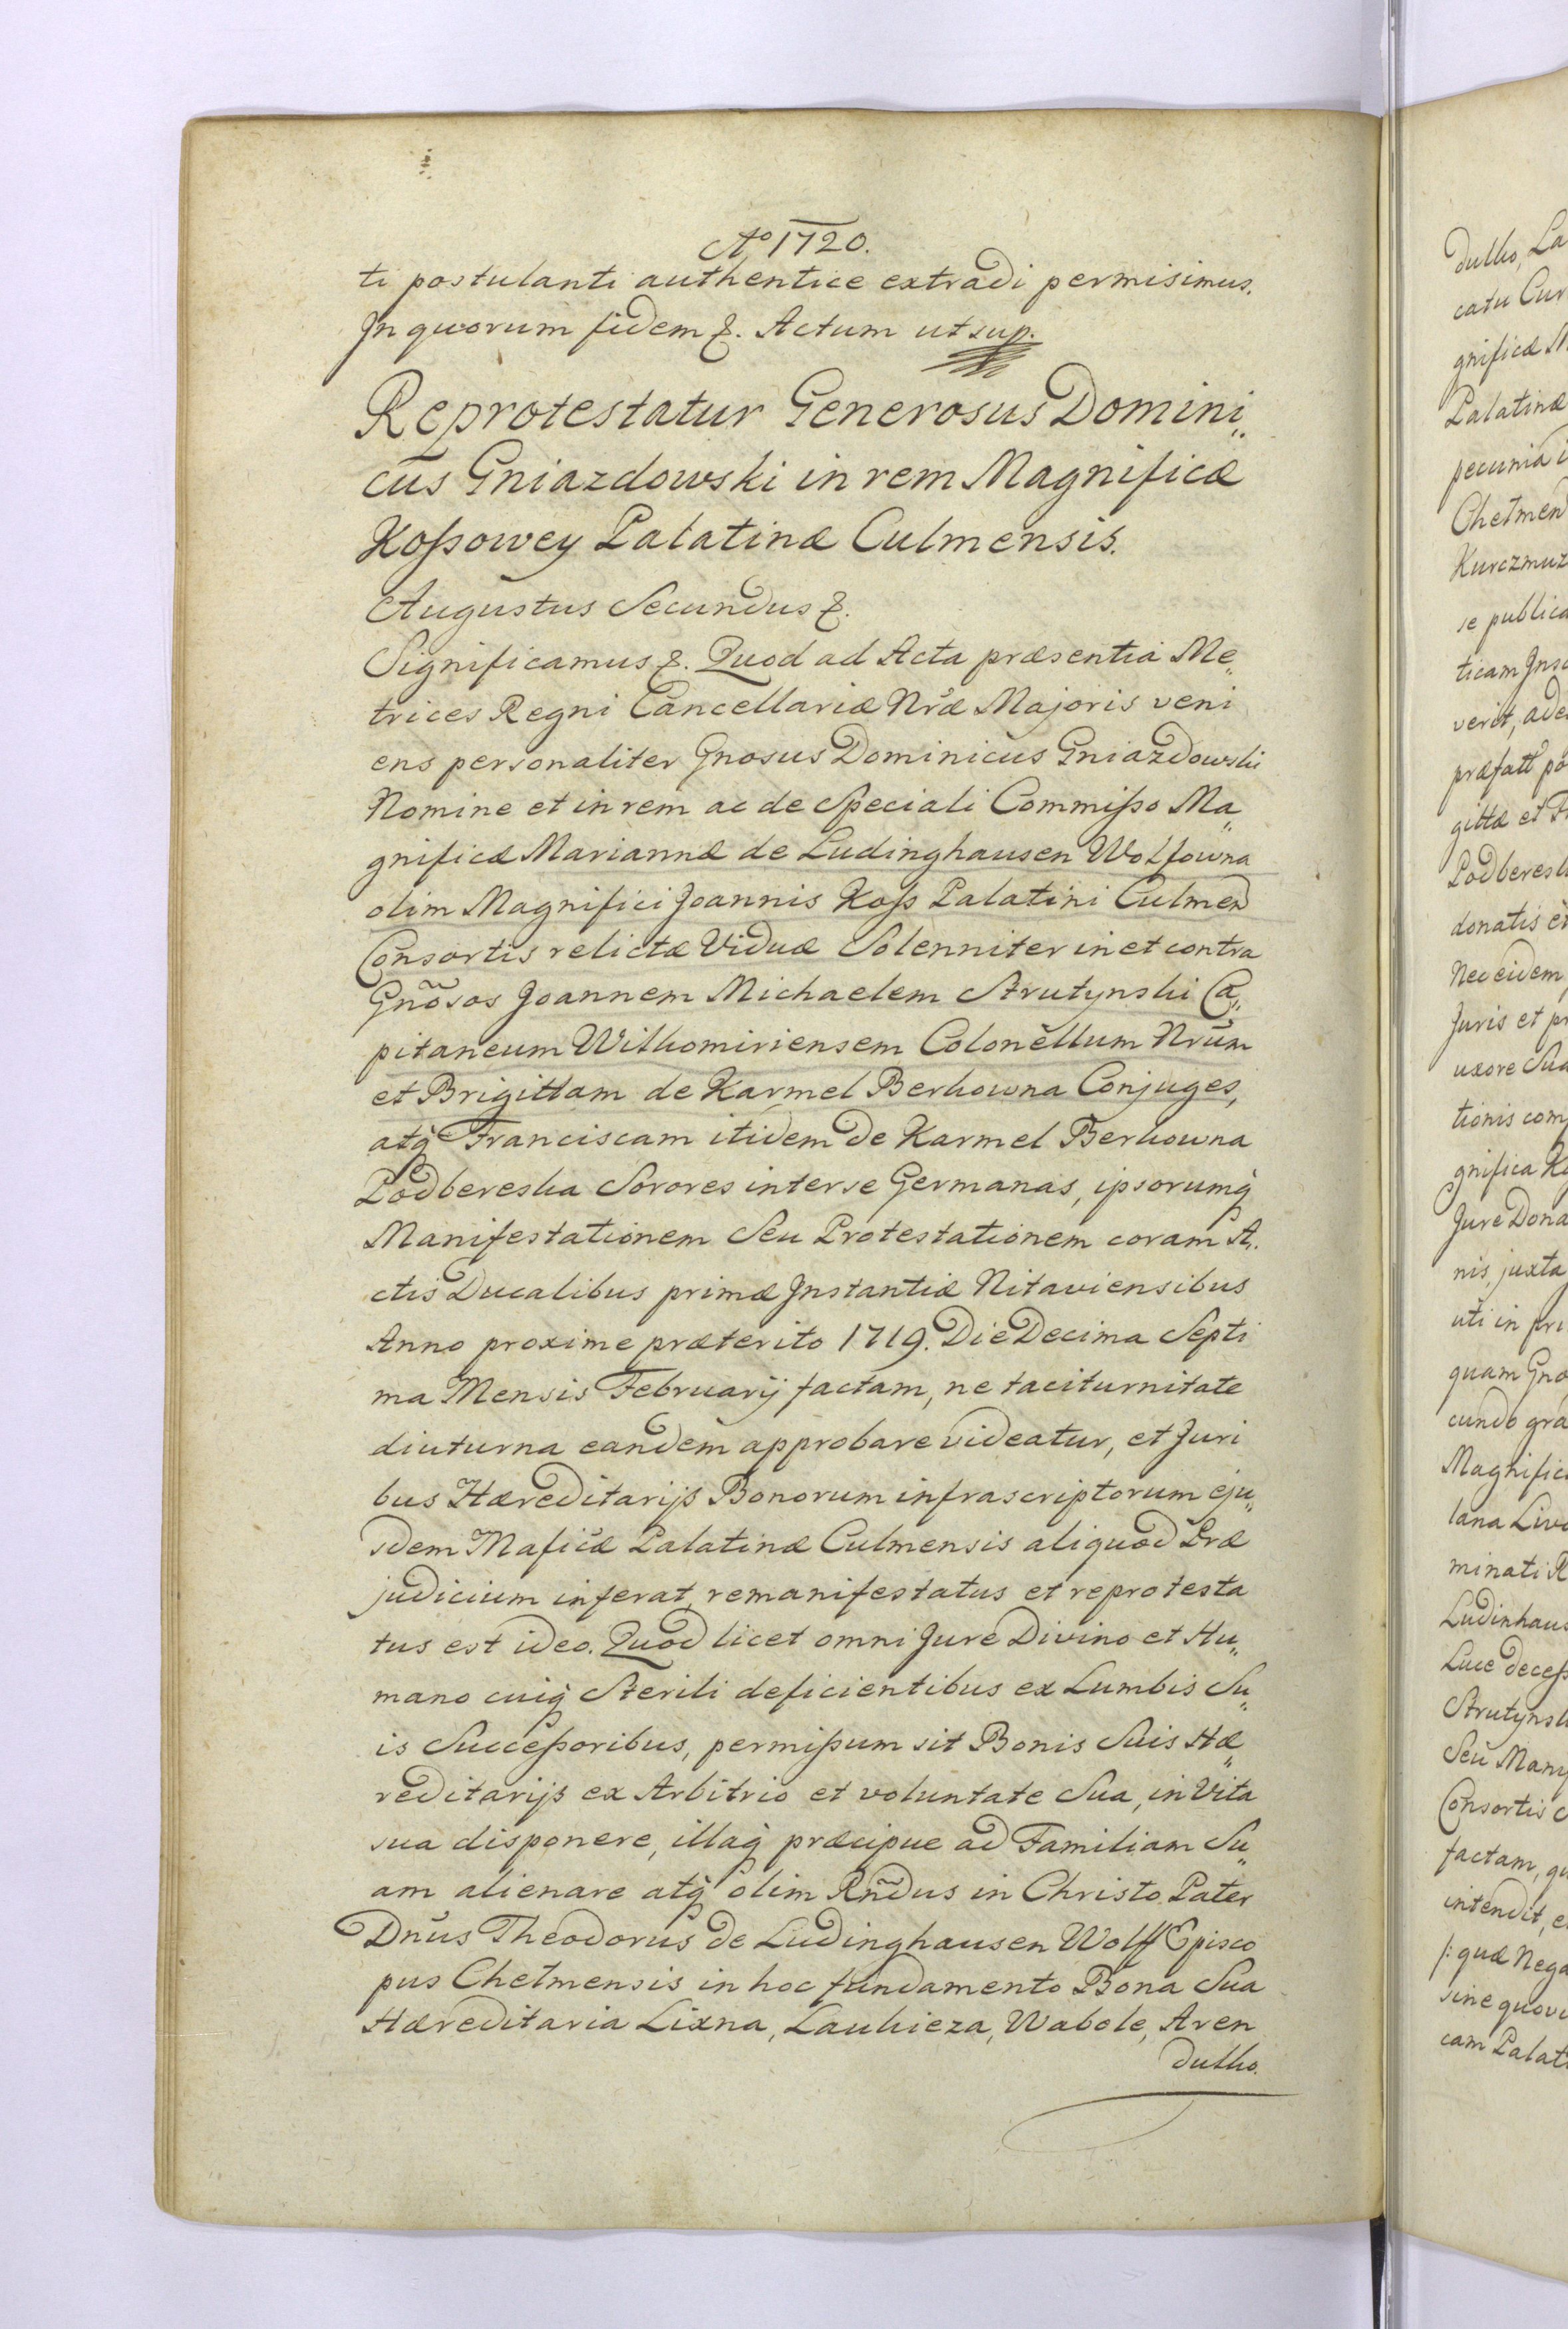 Aº 1720.
ti postulanti authentice extradi permisimus.
In quorum fidem &. Actum ut sup.
Reprotestatur Generosus Domini„
cus Gniazdowski in rem Magnificæ
Koſsowey Palatinæ Culmensis.
Augustus Secundus &.
Significamus &. Quod ad Acta præsentia Me„
trices Regni Cancellariæ Nr̃æ Majoris veni
ens personaliter Gnosus Dominicus Gniazdowski
Nomine et in rem ac de Speciali Commiſso Ma„
gnificæ Mariannæ de Ludinghausen Wolfowna
olim Magnifici Joannis Koſs Palatini Culmen
Consortis relictæ Viduæ Solenniter in et contra
Gnõsos Joannem Michaelem Strutynski Ca„
pitaneum Wilkomiriensem Colonellum Nrum̃
et Brigittam de Karmel Berkowna Conjuges,
atq̃ Franciscam itidem de Karmel Berkowna
Podbereska Sorores inter se Germanas, ipsorumq̃
Manifestationem Seu Protestationem coram A.
ctis Ducalibus primæ Instantiæ Nitaviensibus
Anno proxime præterito 1719. Die Decima Septi
ma Mensis Februarij factam, ne taciturnitate
diuturna eandem approbare videatur, et Juri
bus Hæreditarijs Bonorum infrascriptorum eju„
sdem Maficæ Palatinæ Culmensis aliquod Præ
judicium inferat, remanifestatus et reprotesta
tus est ideo. Quod licet omni Jure Divino et Hu„
mano cuiq̃ Sterili deficientibus ex Lumbis Su„
is Succeſsoribus, permiſsum sit Bonis Suis Hæ„
reditarijs ex Arbitrio et voluntate Sua, in Vita
sua disponere, illaq̃ præcipue ad Familiam Su„
am alienare atq̃ olim Rñdus in Christo Pater
Dnus Theodorus de Ludinghausen Wolff Episco
pus Chelmensis in hoc fundamento Bona Sua
Hæreditaria Lixna, Laukieza, Wabole, Aren
dulko.
dulko, La
catu Cur
gnificæ M
Palatinæ
pecunia
Chelmen
Kurczmuz
se publica
ticam Jns
verit, ade
præfatt po
gittæ et F
Podberesk
donatis et
Nec eidem
Juris et pr
uxore Sua
tionis com
gnifica Ko
Jure Dona
nis, juxta
uti in pri
quam Gno
cundo gra
Magnific
lana Livo
minati R
Ludinhaus
Luce deceſs
Strutynsk
Seu Many
Consortis c
factam, qu
intendit, e
/: quæ Nega
sine quovi
cam Palat